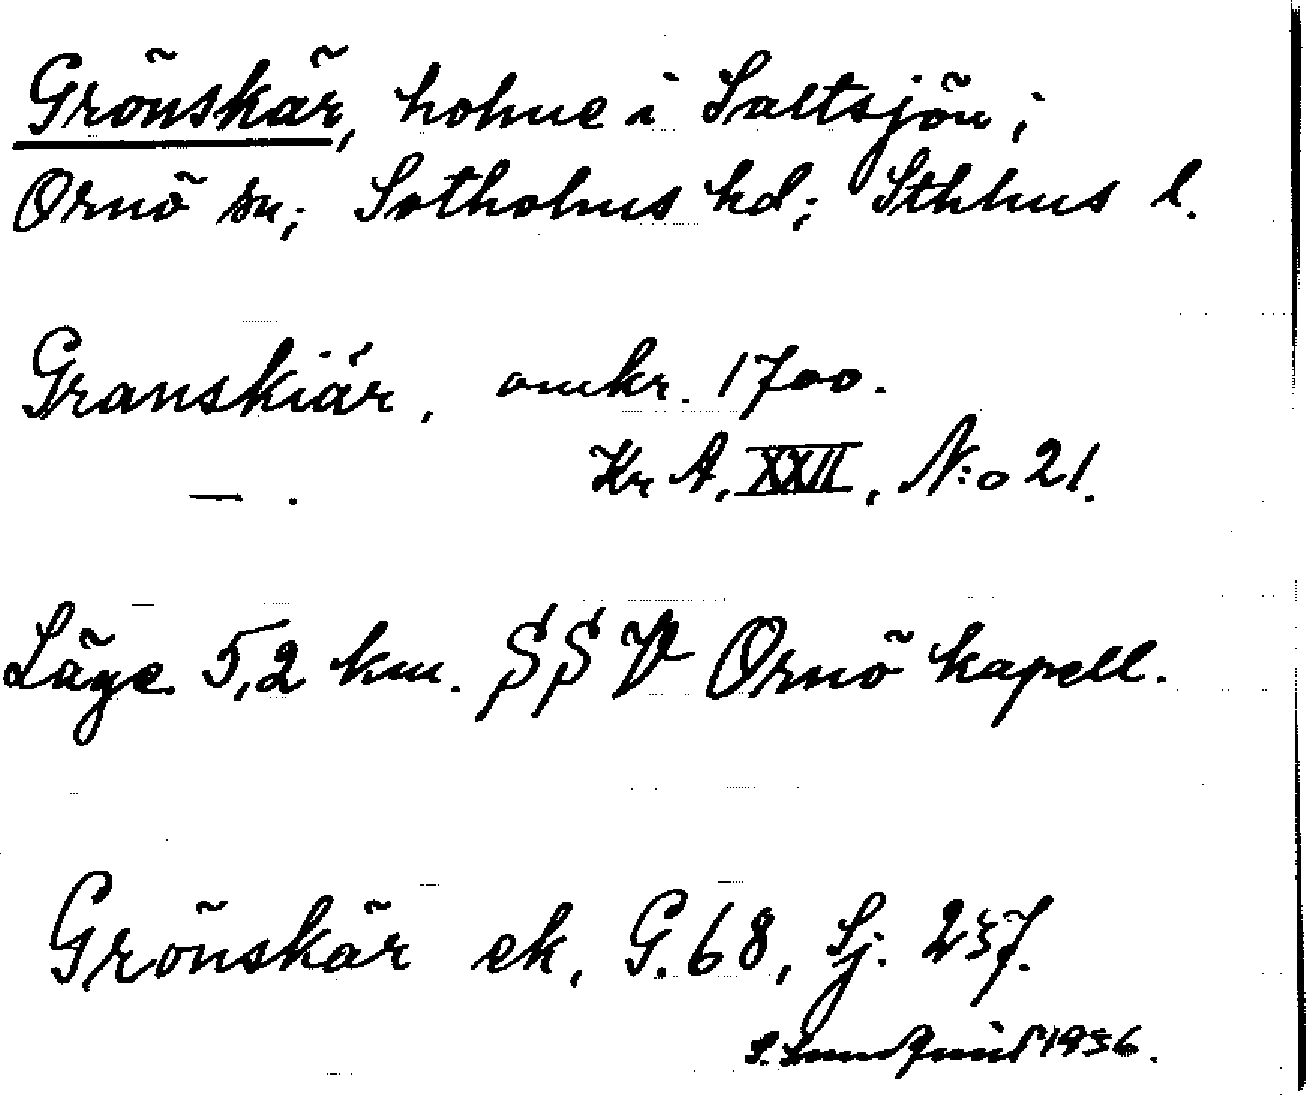 Grönskär, holme i Saltsjön;
Ornö sn; Sotholms hd; Sthlms l.
Granskiär, omkr. 1700.
— . Kr A, XXII, N:o 21.
Läge 5,2 km. SSV Ornö kapell.
Grönskär ek, G. 68, Sj. 257.
S. Lundquist 1936.